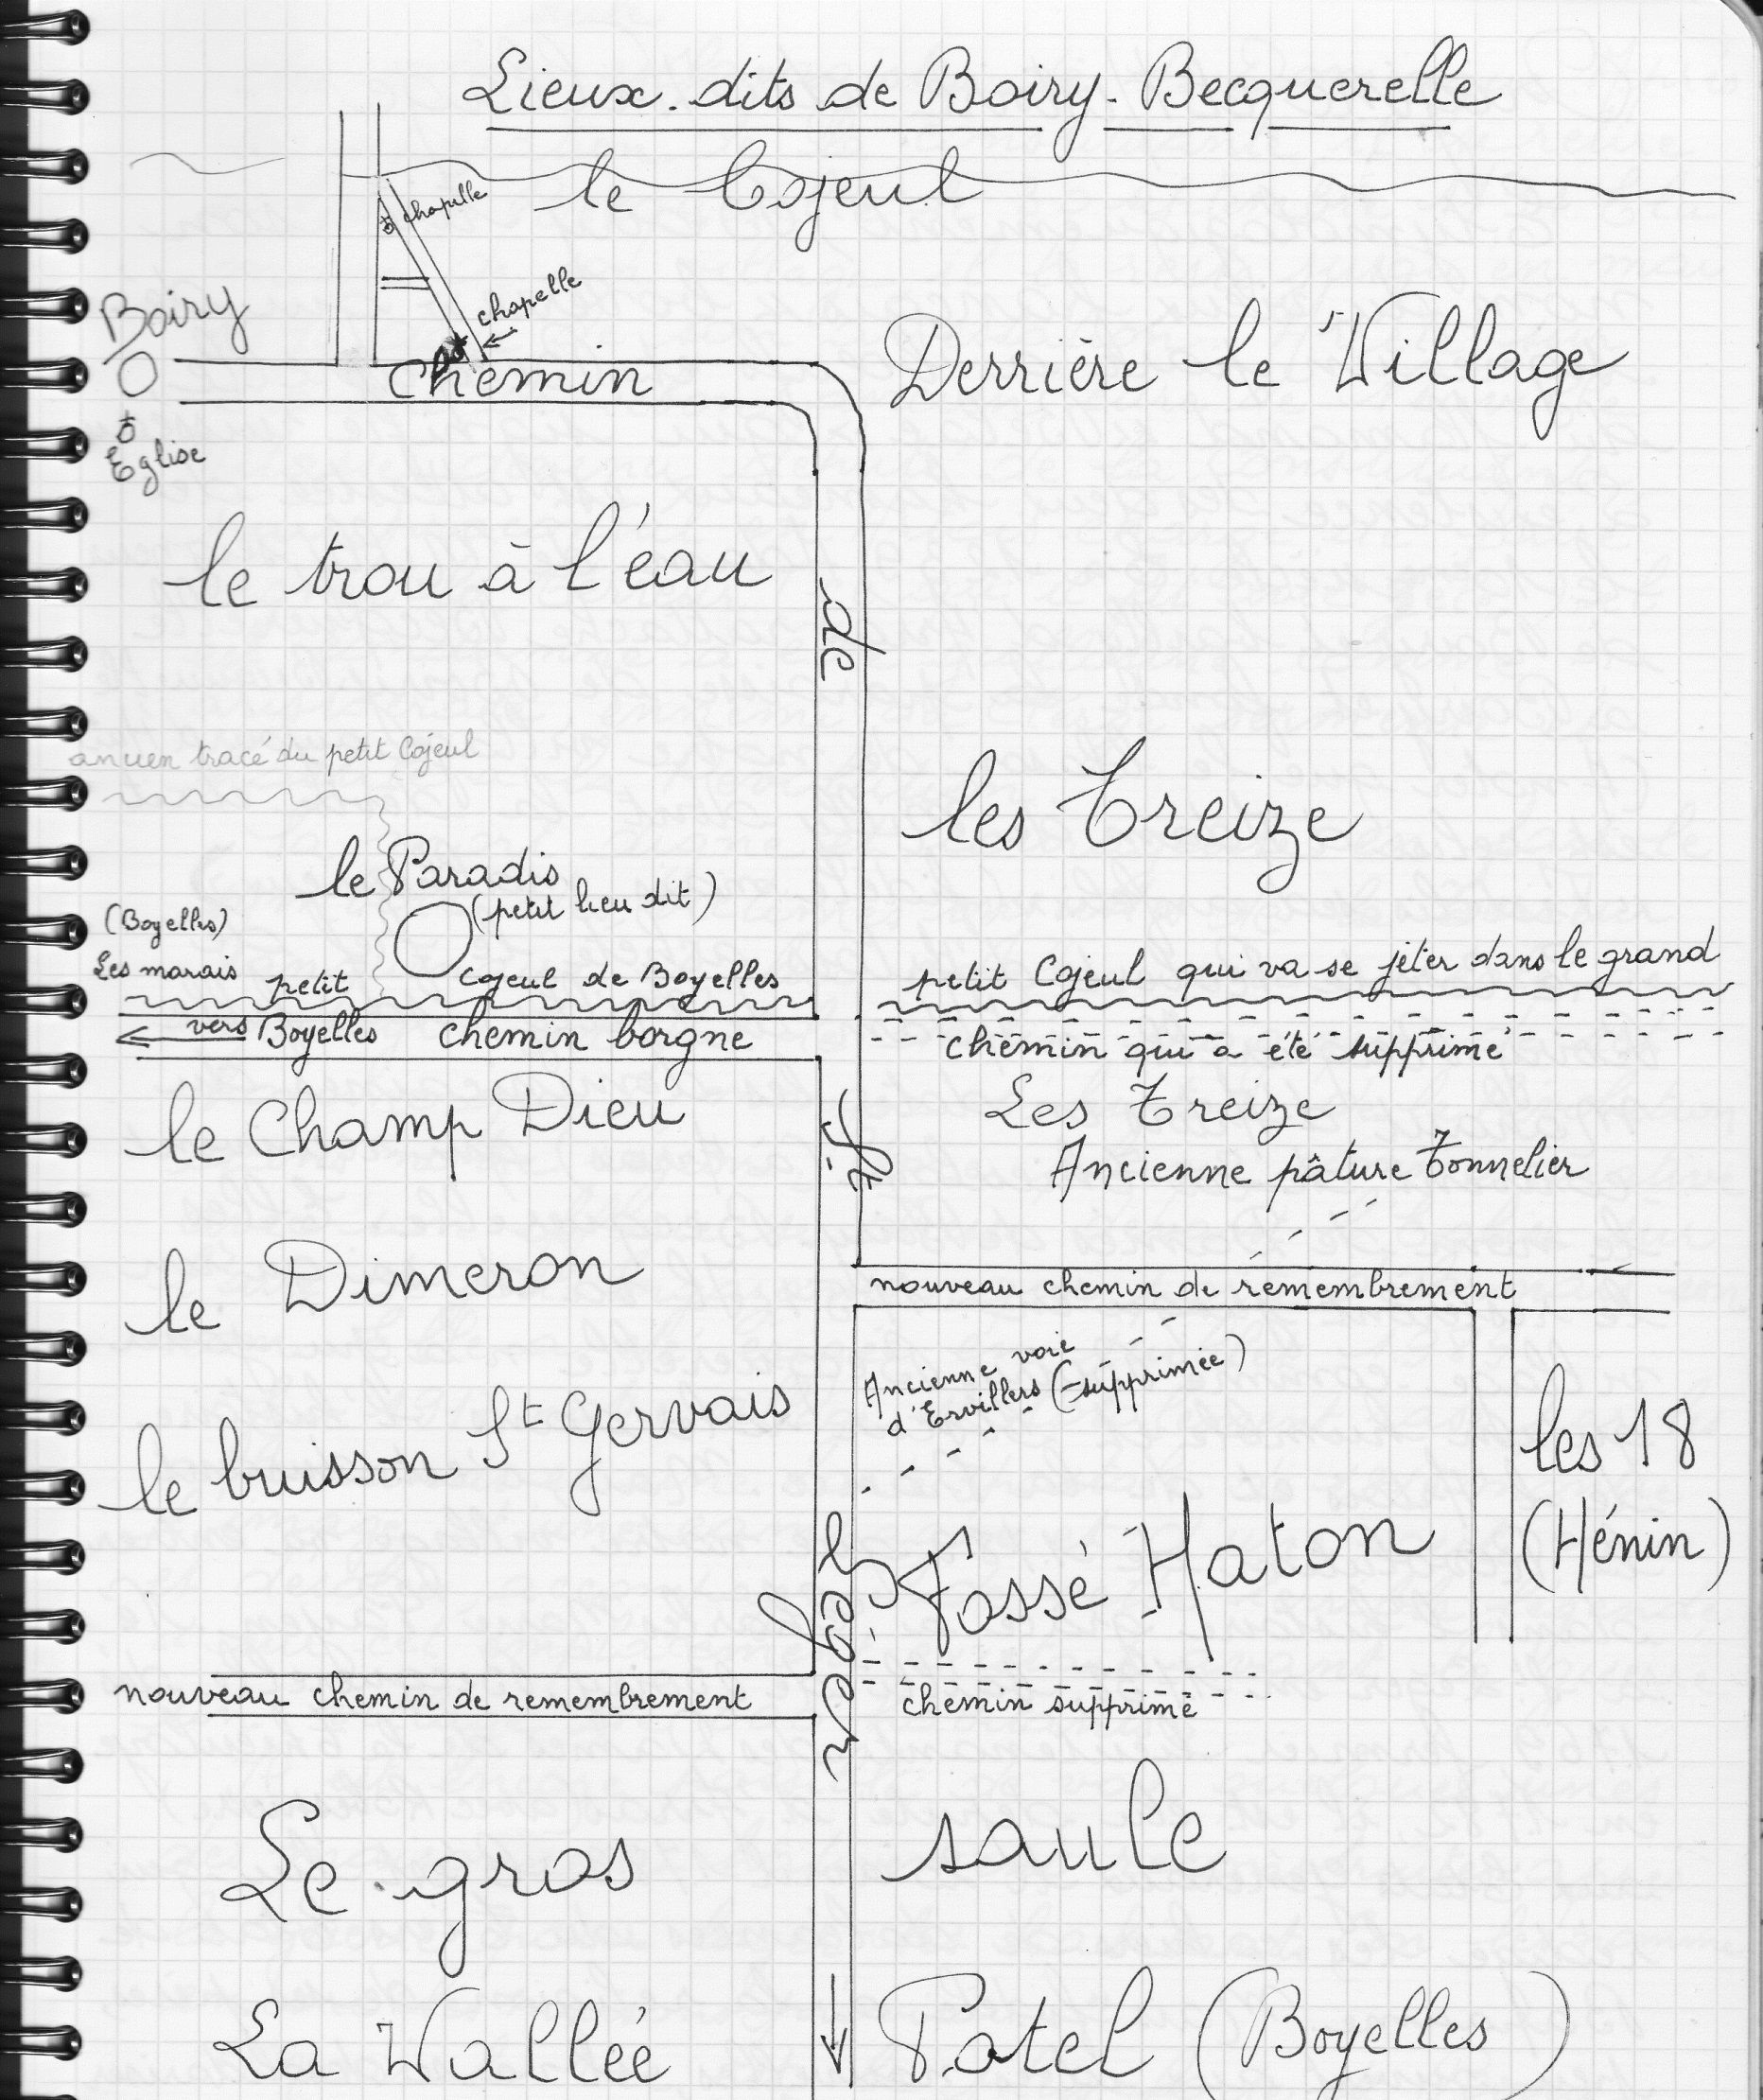 Lieux-dits de Boiry-Becquerelle
le Cojeul
chapelle
chapelle
Boiry
Chemin
Derrière le Village
Eglise
le trou à l'éau
de
ancien tracé du petit Cojeul
les Treize
le Paradis
(petit lieu dit)
(Boyelles)
Les marais
petit cojeul de Boyelles
petit Cojeul qui va se jéter dans le grand
vers Boyelles chemin borgne
chemin qui a été supprimé
le Champ Dieu
Les Treize
St
Ancienne pâture Tonnelier
le Dimeron
nouveau chemin de remembrement
Ancienne voie
d'Ervillers (supprimée)
le buisson St Gervais
les 18
(Hénin)
Léger
Fossé Haton
nouveau chemin de remembrement
chemin supprimé
Le gros saule
La Vallée Patel (Boyelles)